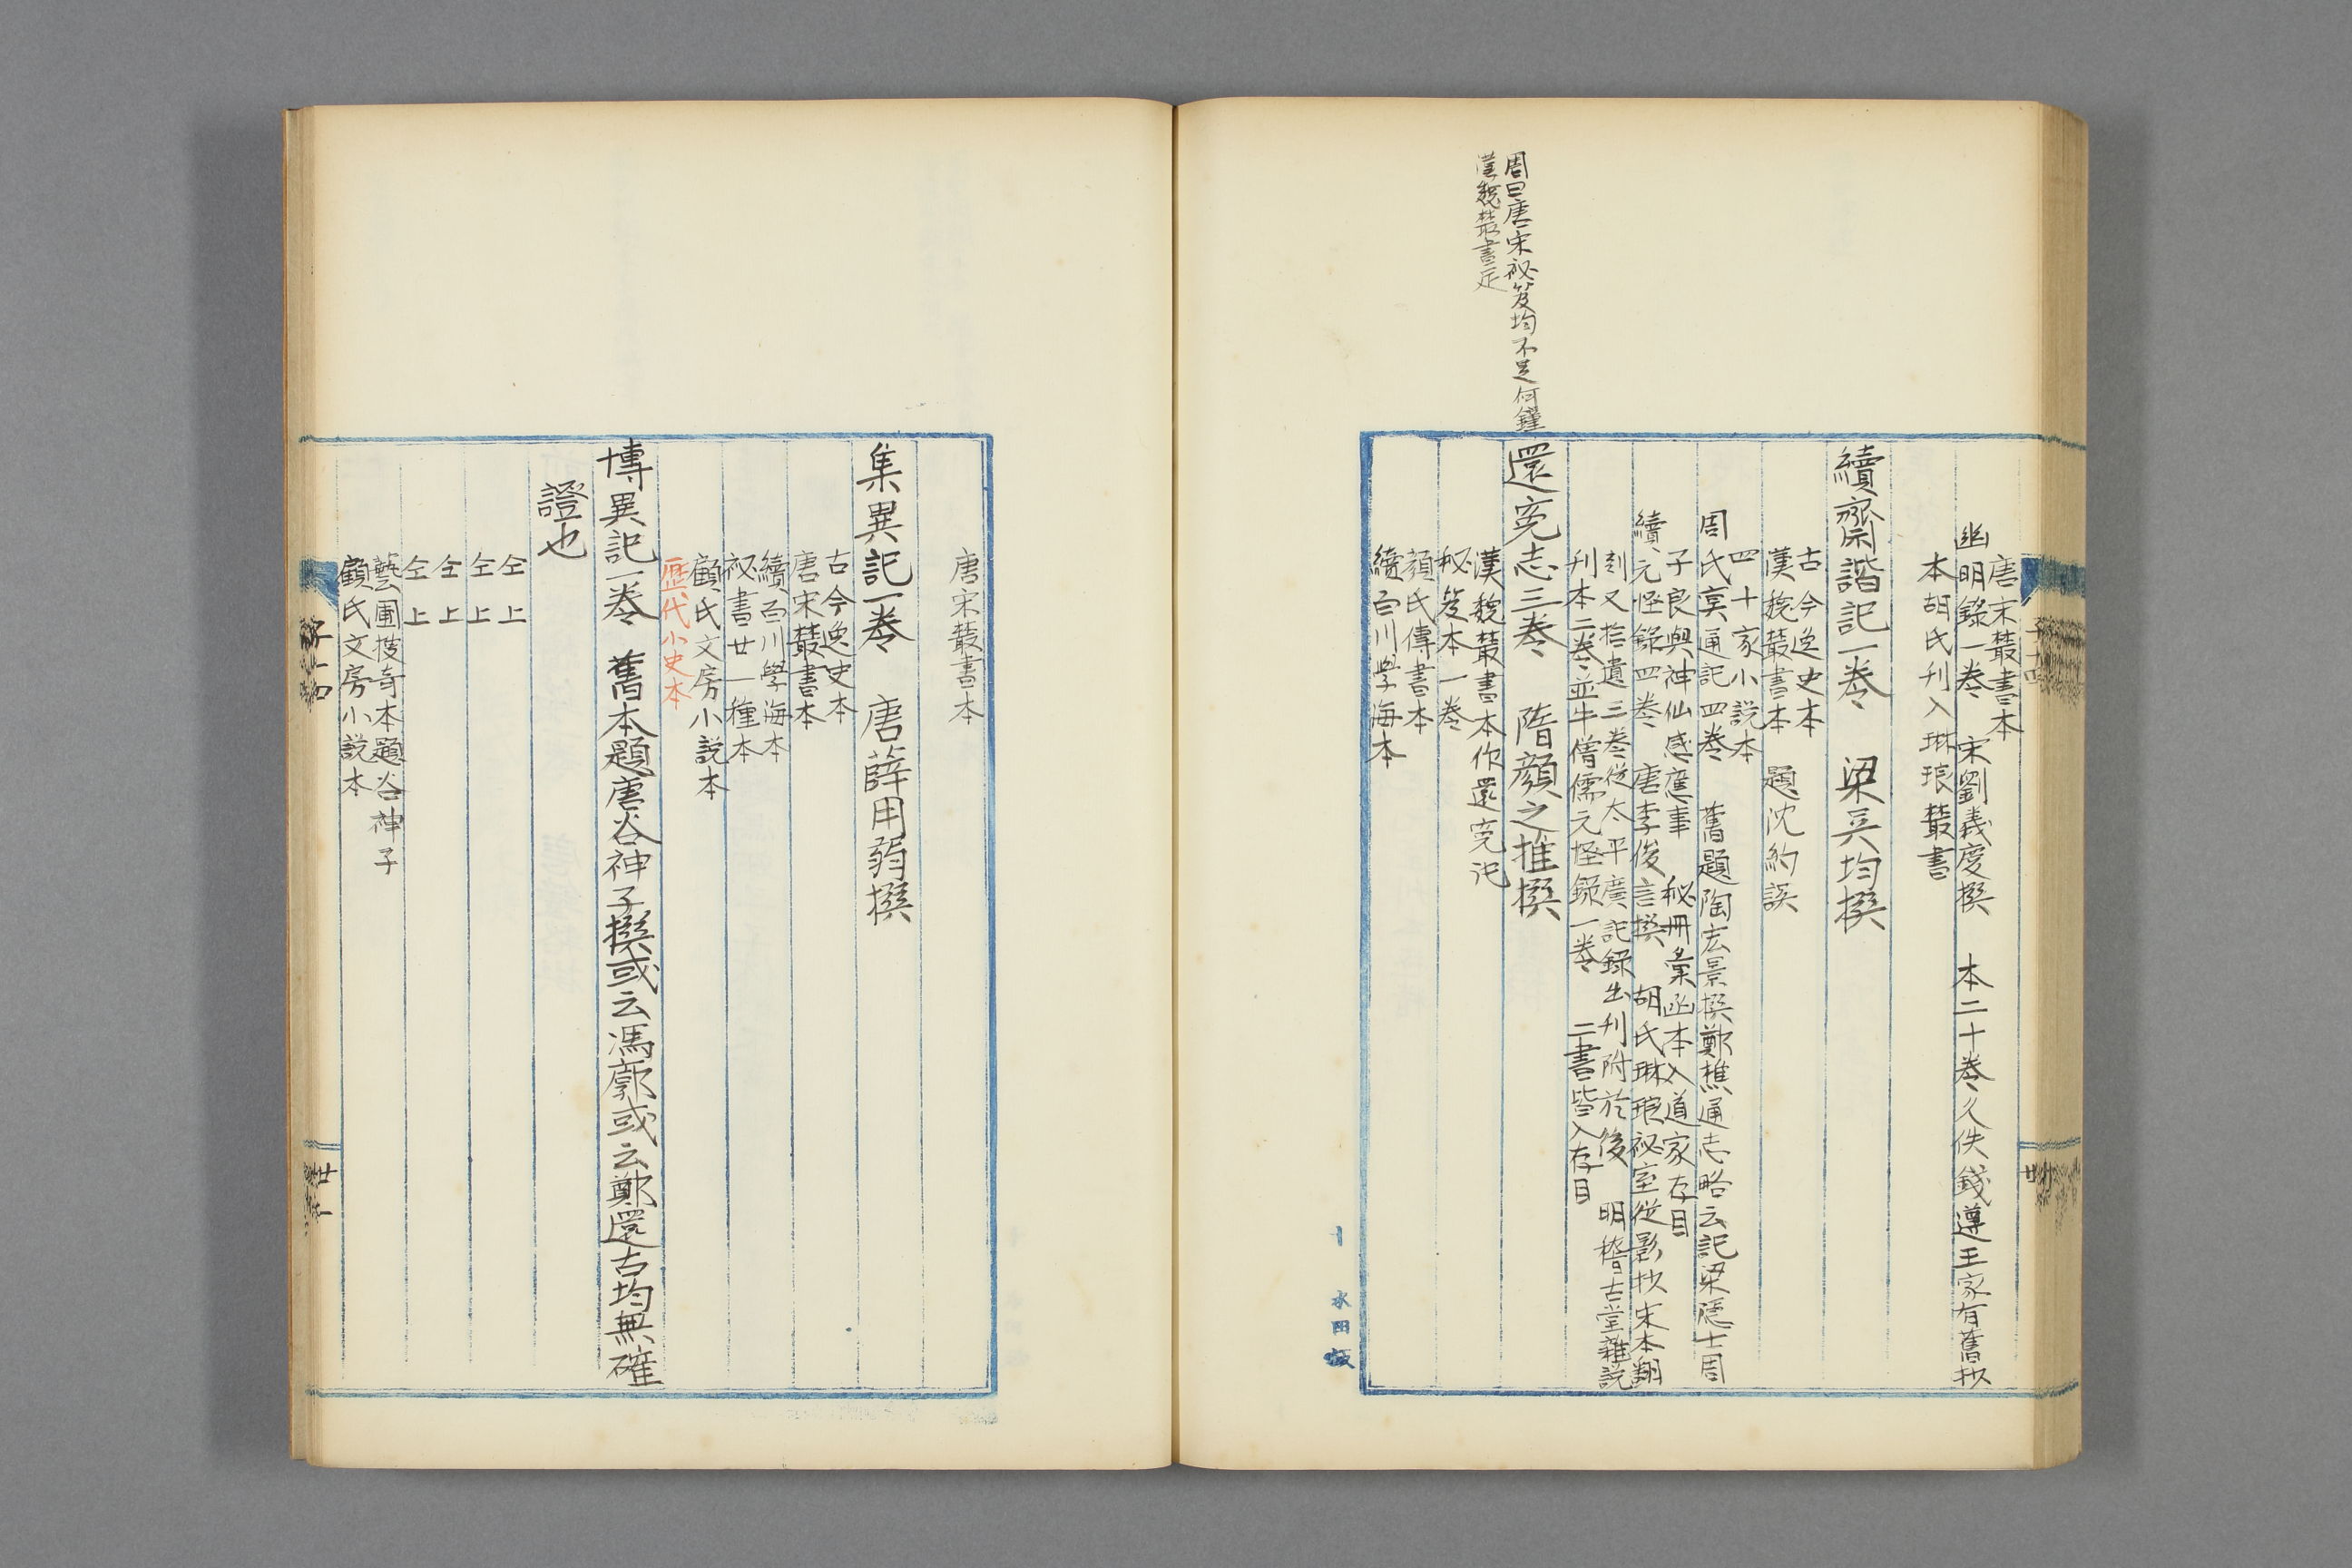 唐宋叢書本
幽明錄一卷 宋劉義慶撰 本二十卷久佚錢遵王家有舊抄
本胡氏刊入琳琅叢書
續齊諧記一卷 梁吳均撰
古今逸史本
漢魏叢書本 題沈約誤
四十家小說本
周氏冥通記四卷 舊題陶宏景撰鄭樵通志略云記梁隱士周
子良與神仙感應事 秘冊彙函本入道家存目
續元怪錄四卷 唐李俊言撰 胡氏琳琅祕室從影抄宋本翻
刻又拾遺三卷從太平廣記錄出刊附於後 明稽古堂雜說
刊本二卷並牛僧儒元怪錄一卷 二書皆入存目
周曰唐宋祕笈均不足何鏜
漢魏叢書足
還寃志三卷 隋顏之推撰
漢魏叢書本作還寃記
秘笈本一卷
顏氏傳書本
續百川學海本
水田
唐宋叢書本
集異記一卷 唐薛用弱撰
古今逸史本
唐宋叢書本
續百川學海本
祕書廿一種本
顧氏文房小說本
歷代小史本
博異記一卷 舊本題唐谷神子撰或云馮廓或云鄭還古均無確
證也
仝上
仝上
仝上
仝上
藝圃搜奇本題谷神子
顧氏文房小說本
子十四